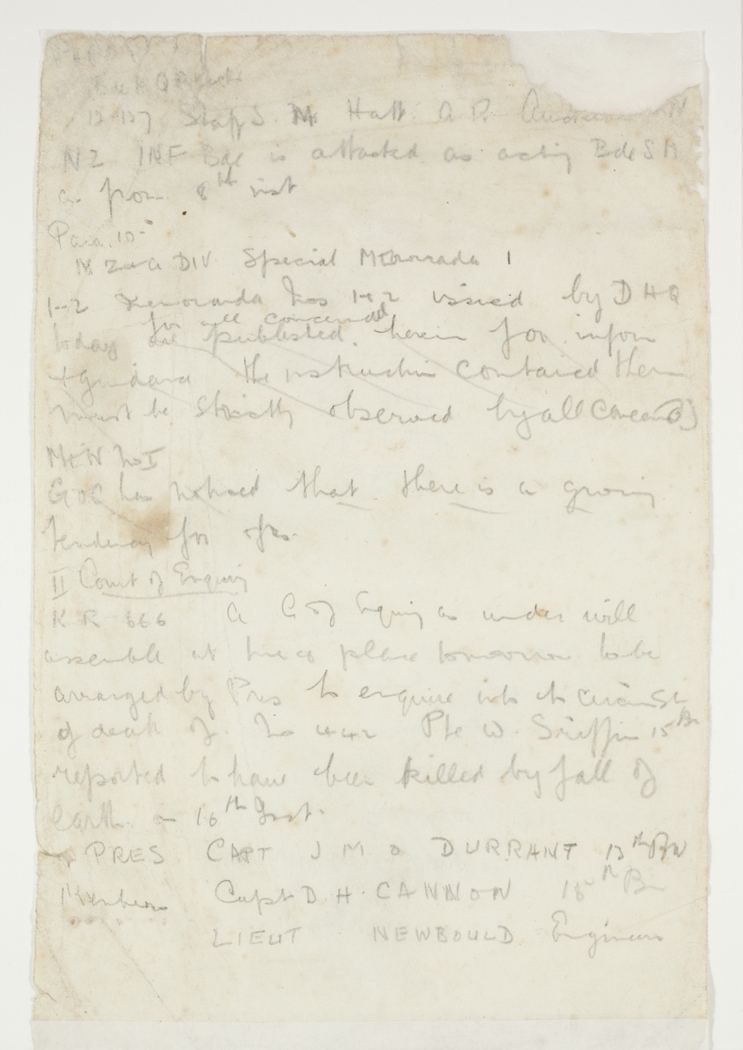 12/137 Staff S. M Hatt A. P.
NZ INF Bde is attached as acting Bde S M
as from 8th inst
Para. 10-
N Z & A DIV Special Memoranda 1
1-2 Memoranda Nos 1 & 2 issued by D H Q
for all concerned
today are published herein for inform
& Guidance the instruction contained therein
must be strictly observed by all concerned
MEM No I
GOC has noticed that there is a growing
tendency for ofrs.
II Court of Enquiry
K R 666 A C of Enquiry as under will
assemble at time & place tomorrow to be
arranged by Pres to enquire into the circumst
of death of No 442 Pte W. Griffin 15th Bn
reported to have been killed by fall of
earth on 16th Inst.
PRES CAPT J M O DURRANT 13th BN
Members Capt D. H. CANNON 15th Bn
LIEUT NEWBOULD Engineers